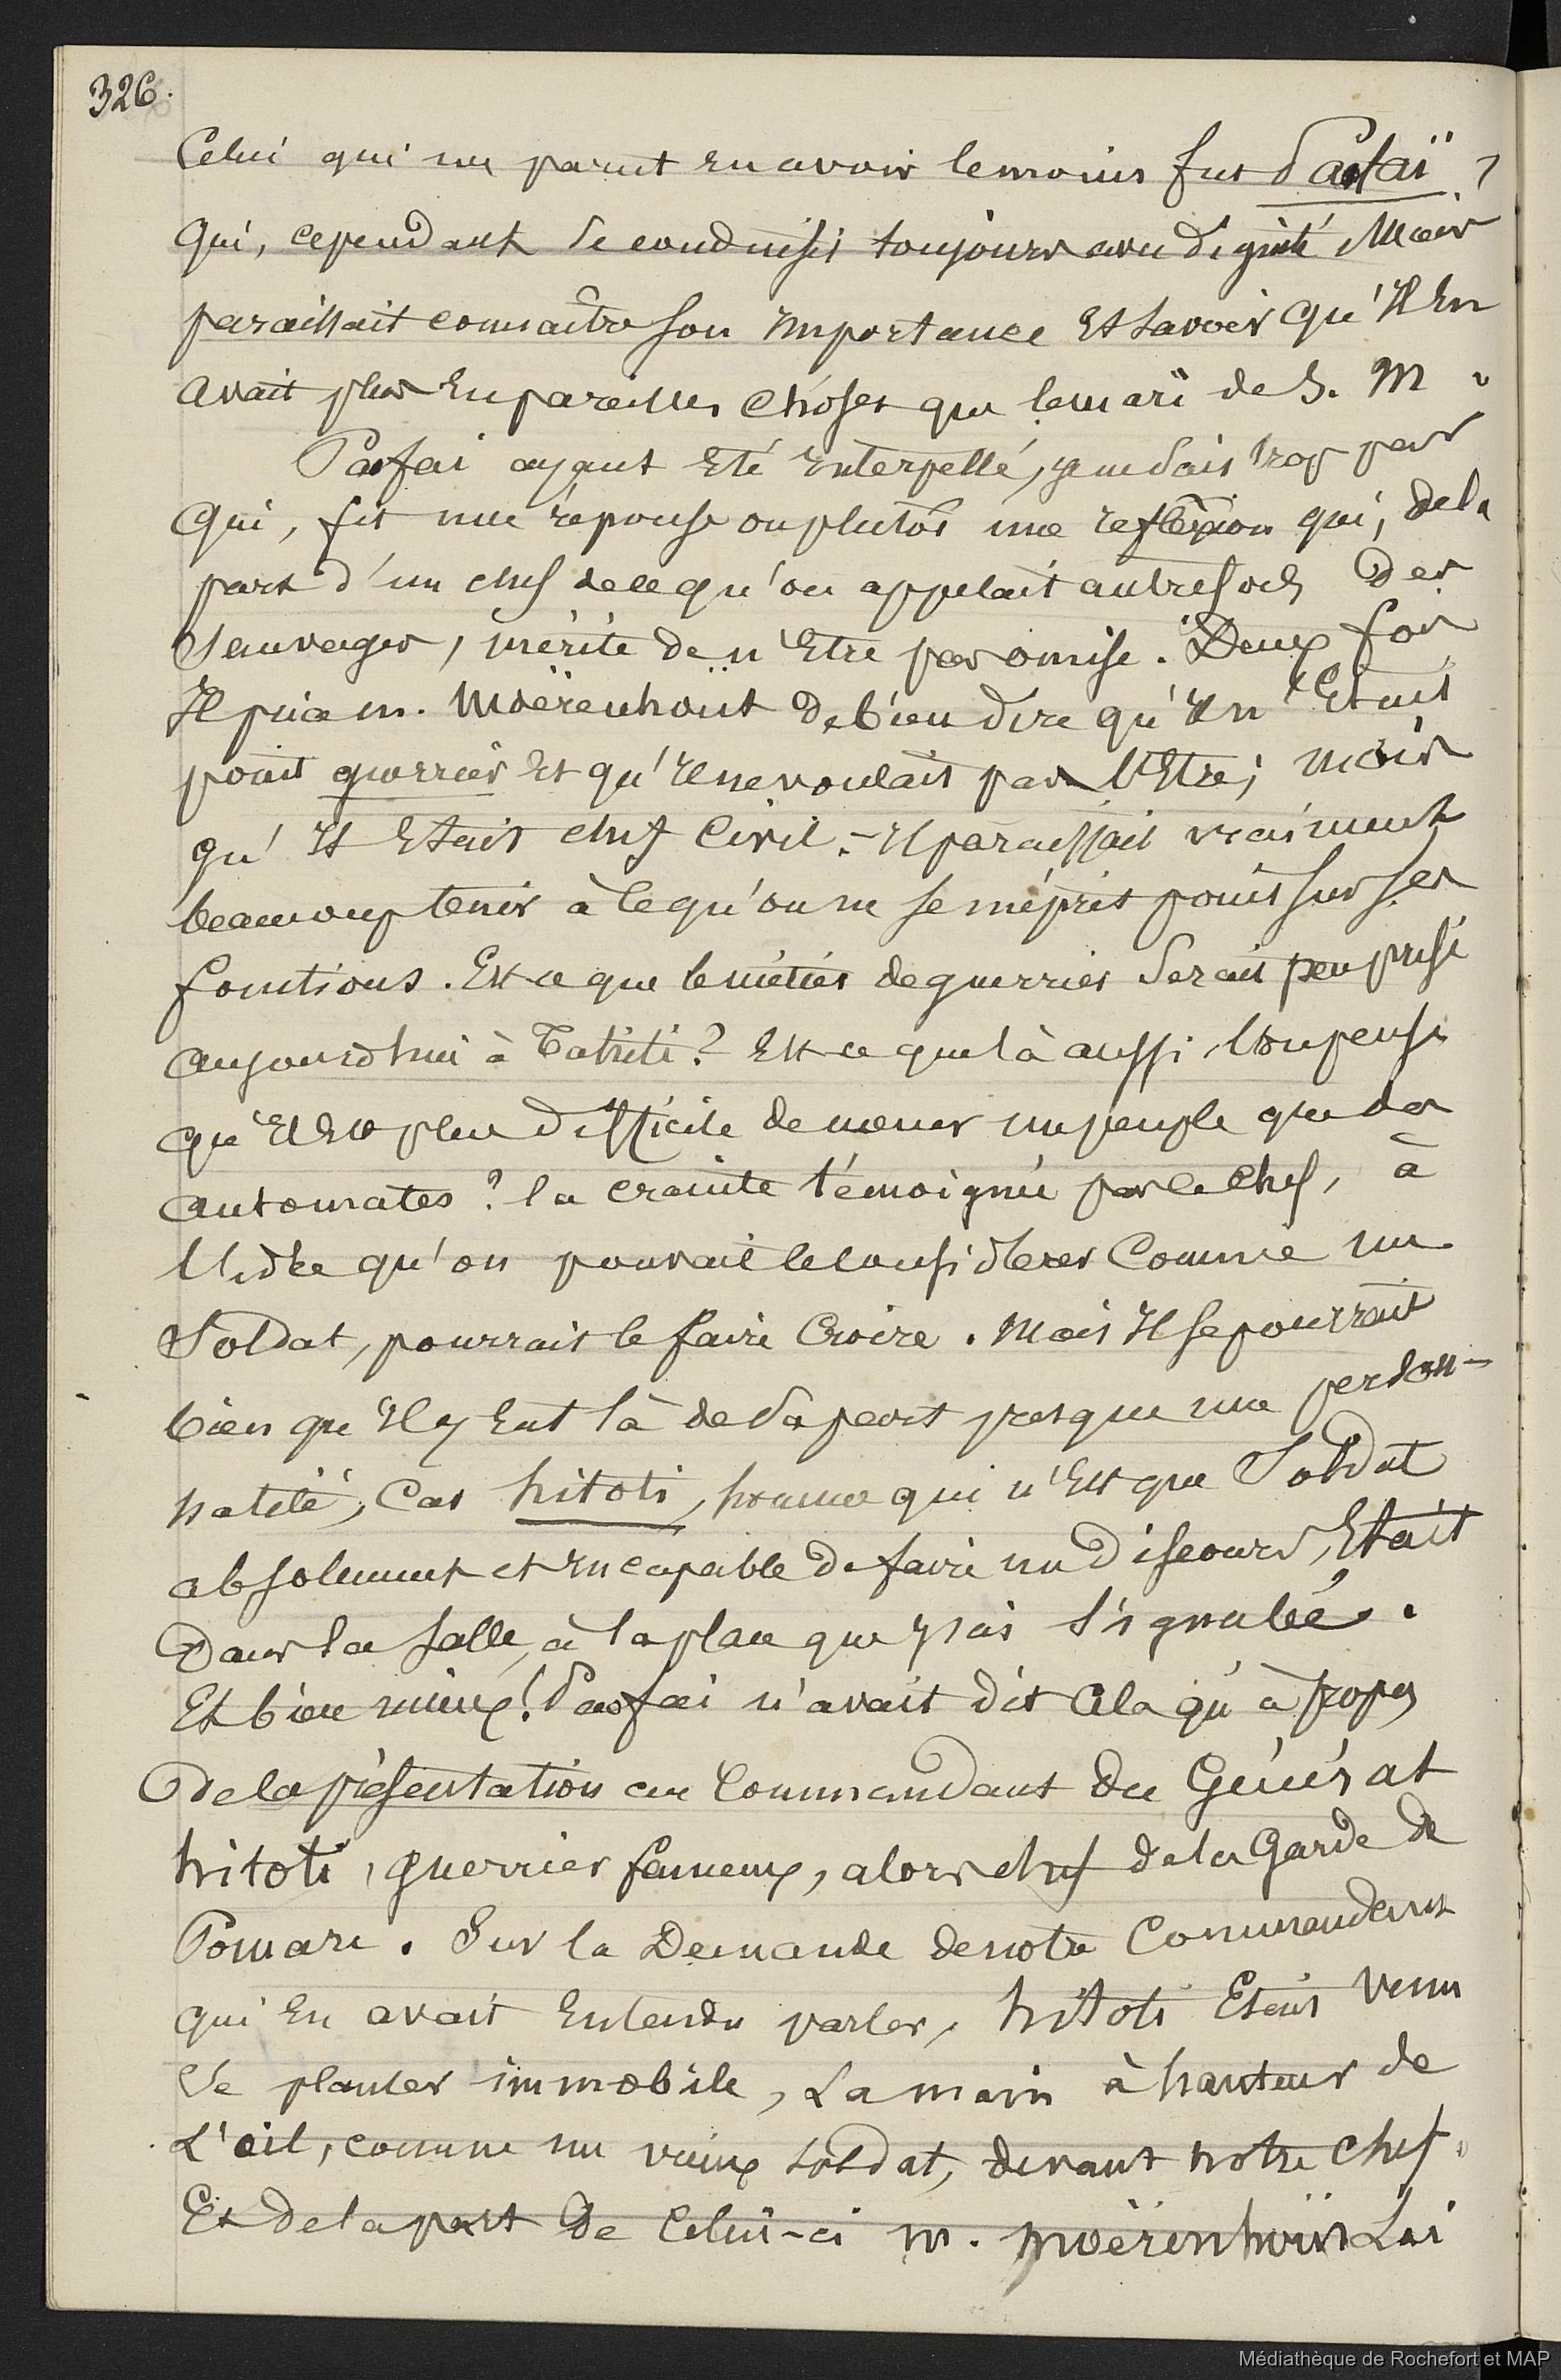 326.
Celui qui me parut en avoir le moins fut Paofaï,
qui, cependant se conduisit toujours avec dignité Mais
paraissait connaître son importance Et savoir qu'Il En
avait plus En pareilles choses que le mari de S. M.
Paofai ayant Eté Interpellé, je ne sais trop par
qui, fit une réponse ou plutôt une reflexion qui, de la
part d'un chef de ce qu'on appelait autrefois Des
Sauvages, mérite de n'Etre pas omise. Deux fois
Il pria m. Moërenhoüt de bien dire qu'Il n'Etait
point guerrier Et qu'Il ne voulait pas l'Etre; Mais
qu'Il Etait chef Civil. - Il paraissait vraiment
beaucoup tenir à ce qu'on ne se méprit point sur ses
fonctions. Est ce que le métier de guerrier Serait peu prisé
aujourdhui à Tahiti? Est ce que là aussi, l'on pense
qu'Il Est plus difficile de mener un peuple que des
automates? la crainte témoignée par le Chef, à
l'idée qu'on pouvait le considérer Comme un
Soldat, pourrait le faire Croire. Mais Il se pourrait
bien qu'Il y Eut là de sa part presque une person-
nalité, Car hitoti, homme qui n'Est que Soldat
absolument et Incapable de faire un Discours, Etait
Dans la salle, à la place que j'ai signalée.
Et bien mieux! Paofai n'avait dit Cela qu'à propos
De la présentation au Commandant du Général
hitoti, guerrier fameux, alors chef de la Garde de
Pomare. Sur la Demande de notre Commandant
qui En avait Entendu parler, hitoti Etait venu
Se planter immobile, La main à hauteur de
L'œil, comme un vieux soldat, devant notre chef.
Et de la part de Celui-ci m. moërenhoüt Lui
Médiathèque de Rochefort et MAP